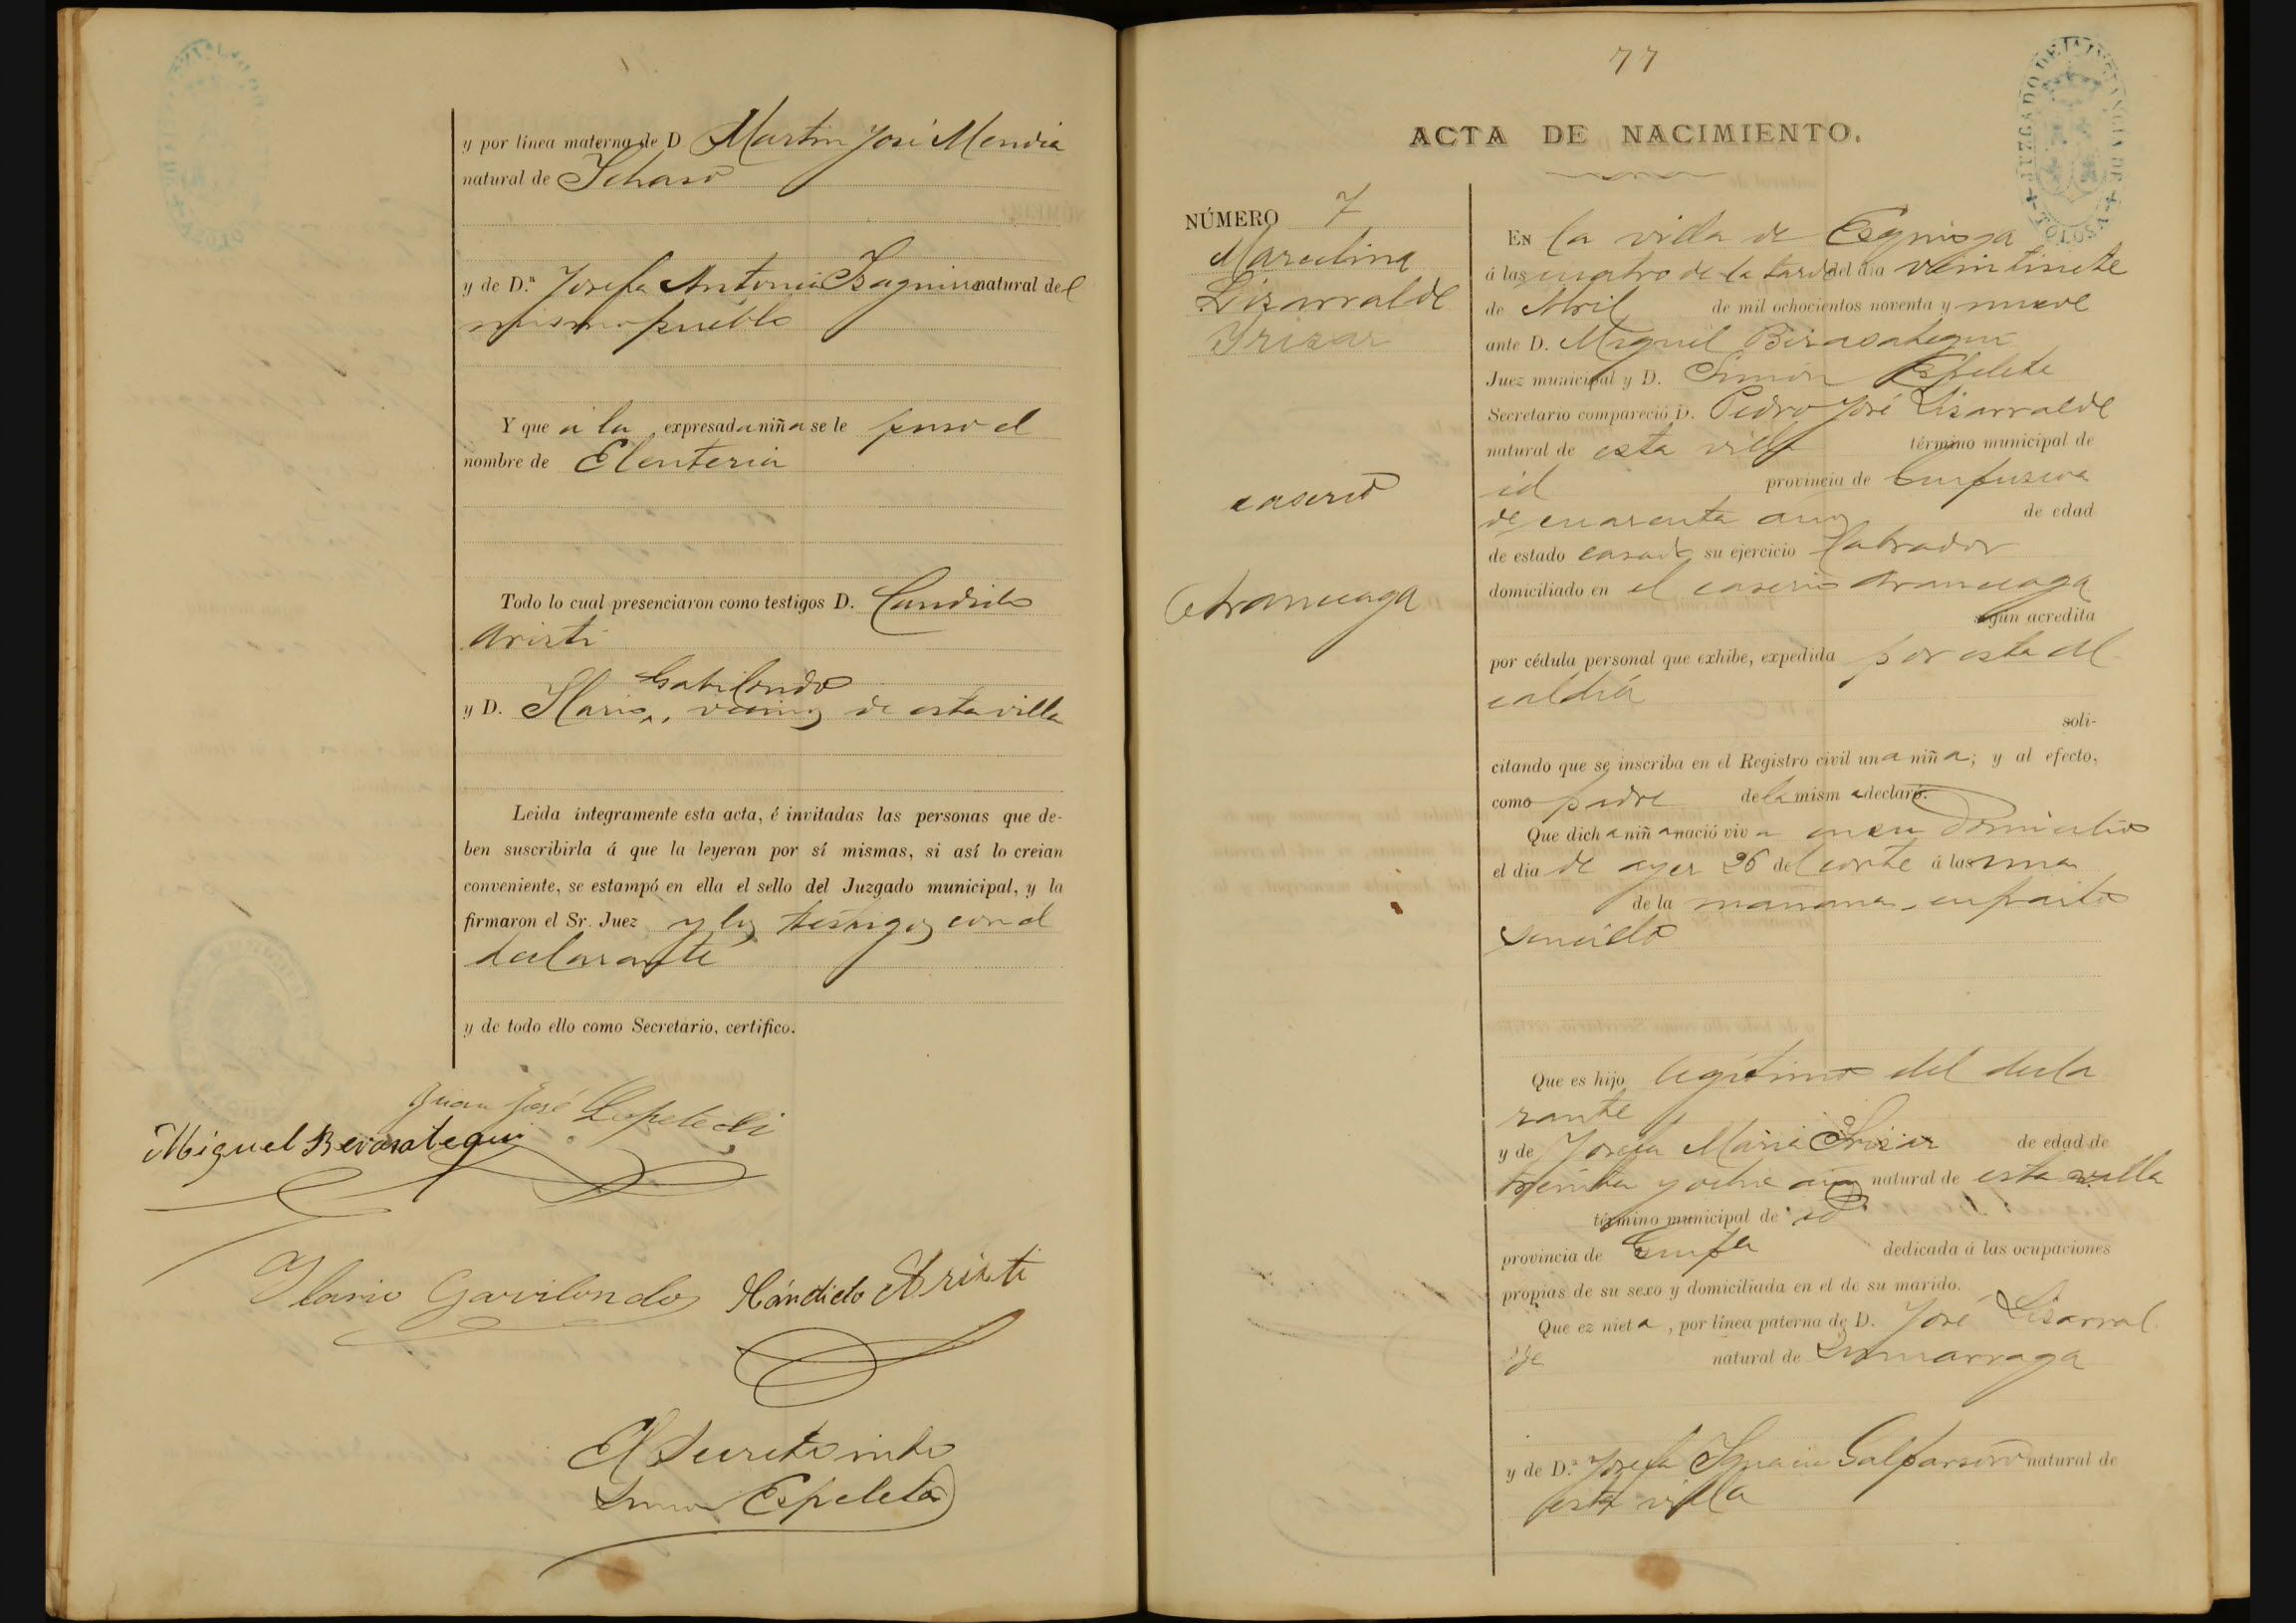 y por línea materna de D Martin José Mendia
natural de Ichaso
y de D.ª Josefa Antonia Izaguirre natural del
mismo pueblo
Y que a la expresada niña se le puso el
nombre de Eleuteria
Todo lo cual presenciaron como testigos D. Candido
Aristi
Gabilondo
y D. Ilario, vecinos de esta villa
Leida íntegramente esta acta, é invitadas las personas que de-
ben suscribirla á que la leyeran por sí mismas, si así lo creian
conveniente, se estampó en ella el sello del Juzgado municipal, y la
firmaron el Sr. Juez y los testigos con el
declarante
y de todo ello como Secretario, certifico.
Juan José
Miguel Berasategui
Ilario Gavilondo Cándido Aristi
El Secretario
Simon Espeleta
77
JUZGADO DE 1.ª INSTANCIA DE TOLOSA
ACTA DE NACIMIENTO.
NÚMERO 7
Marcelina
Lizarralde
Yrizar
caserio
Aranceaga
EN la villa de Ezquioga
á las cuatro de la tarde del dia veintisiete
de Abril de mil ochocientos noventa y nueve
ante D. Miguel Berasategui
Juez municipal y D. Simon Espeleta
Secretario compareció D. Pedro José Lizarralde
natural de esta villa término municipal de
id provincia de Guipuzcoa
de cuarenta años de edad
de estado casado su ejercicio labrador
domiciliado en el caserio Aranceaga
según acredita
por cédula personal que exhibe, expedida por esta al
caldia
soli-
citando que se inscriba en el Registro civil una niña; y al efecto,
como padre de la misma declaró:
Que dicha niña nació viva en su domicilio
el dia de ayer 26 del corrte á las una
de la mañana, en parto
sencillo
Que es hijo legítimo del decla
rante
y de Josefa Maria Irizar de edad de
treinta y ocho años natural de esta villa
término municipal de id
provincia de Guipca dedicada á las ocupaciones
propias de su sexo y domiciliada en el de su marido.
Que ez nieta, por línea paterna de D. José Lizarral
de natural de Zumarraga
y de D.ª Josefa Ignacia Galparsoro natural de
esta villa